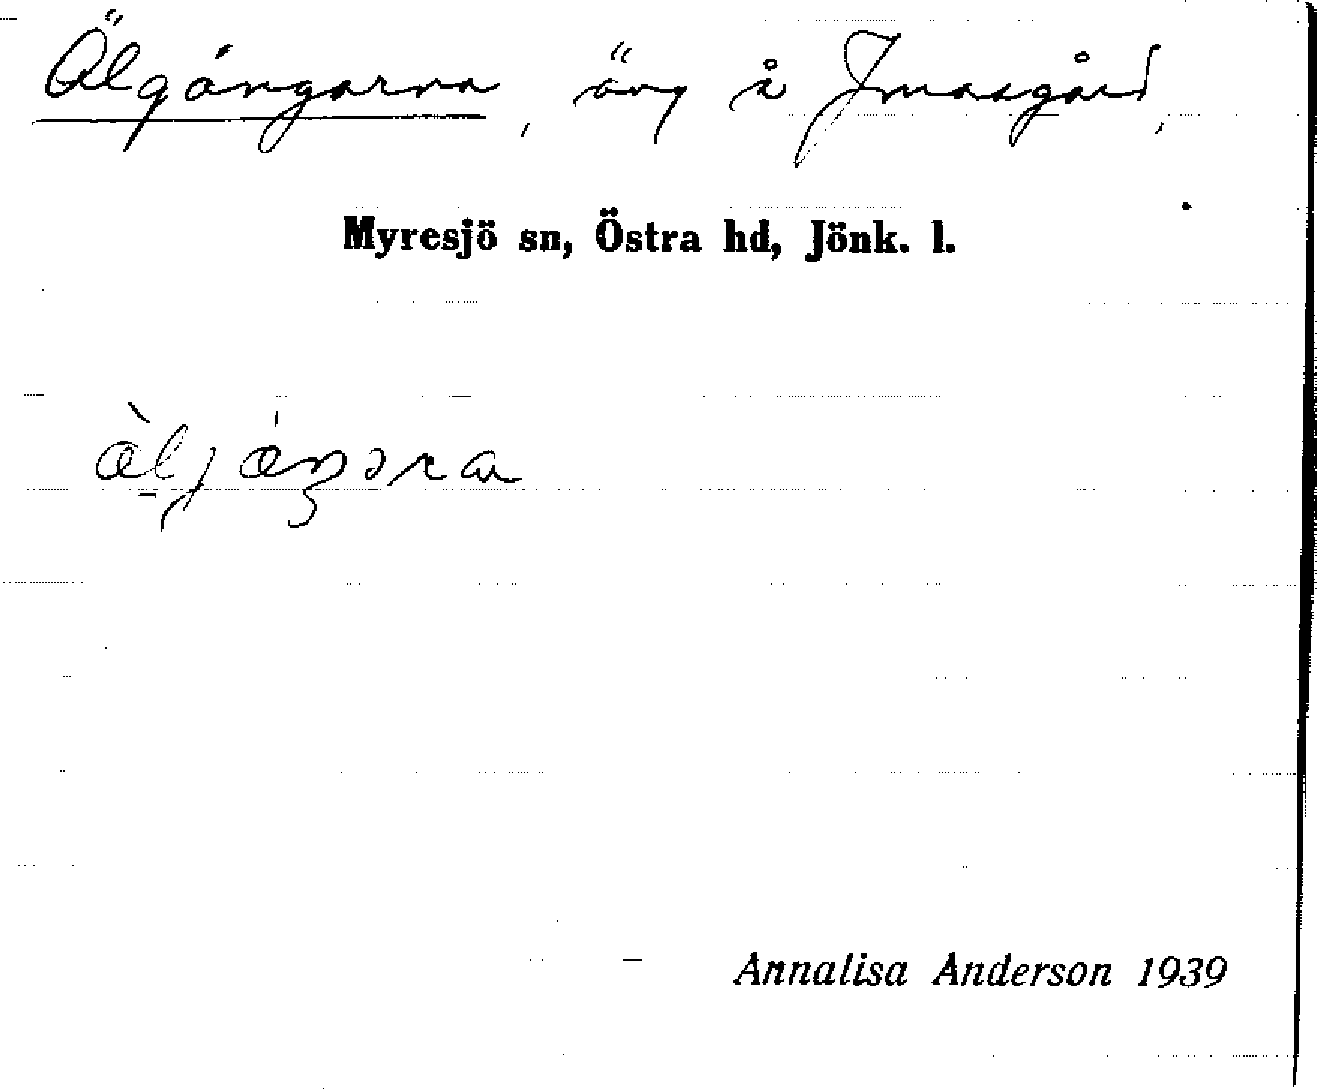 Älgångarna, äng å Jmasgård,
Myresjö sn, Östra hd, Jönk. l.
Annalisa Anderson 1939